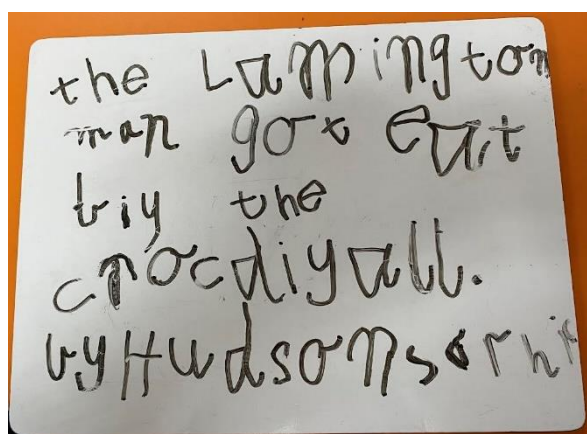 the Lamington
man got eat
biy the
crocdiyall.
by Hudson